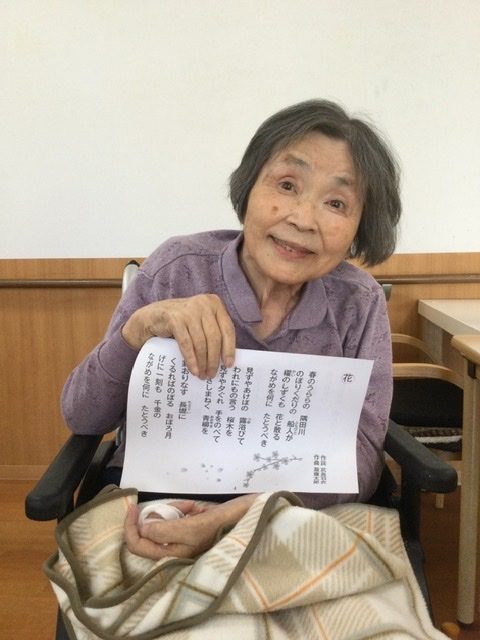 花
作詞 武島羽衣
作曲 瀧廉太郎
春のうららの 隅田川
のぼりくだりの 船人が
櫂のしずくも 花と散る
ながめを何に たとうべき
見ずやあけぼの 露浴びて
われにもの言う 桜木を
見ずや夕ぐれ 手をのべて
さしまねく 青柳を
おりなす 長堤に
くるればのぼる おぼろ月
げに一刻も 千金の
ながめを何に たとうべき